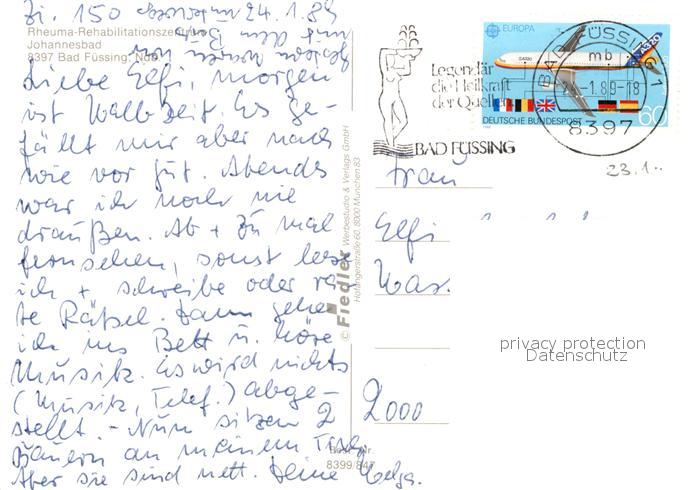 Zi. 150 24.1.89
Rheuma-Rehabilitationszentrum
Johannesbad
8397 Bad Füssing
Liebe Elfi, morgen
ist Halbzeit. Es ge-
fällt mir aber nach
wie vor gut. Abends
war ich noch nie
draußen. Ab + zu mal
fernsehen, sonst lese
ich + schreibe oder ra-
te Rätsel. Dann gehe
ich ins Bett u. höre
Musik. Es wird nichts
(Musik, Telef.) abge-
stellt. - Nun sitzen 2
Bäuern an meinem Tisch
Aber sie sind nett. Deine Helga.
© Fiedler Werbestudio & Verlags GmbH
Hofangerstraße 60, 8000 München 83
Best.-Nr.
8399/847
Legendär
die Heilkraft
der Quellen
BAD FÜSSING
EUROPA
A320
60
DEUTSCHE BUNDESPOST
BAD FÜSSING 1
mb
1.89-18
8397
23.1.
Frau
Elfi
2000
privacy protection
Datenschutz